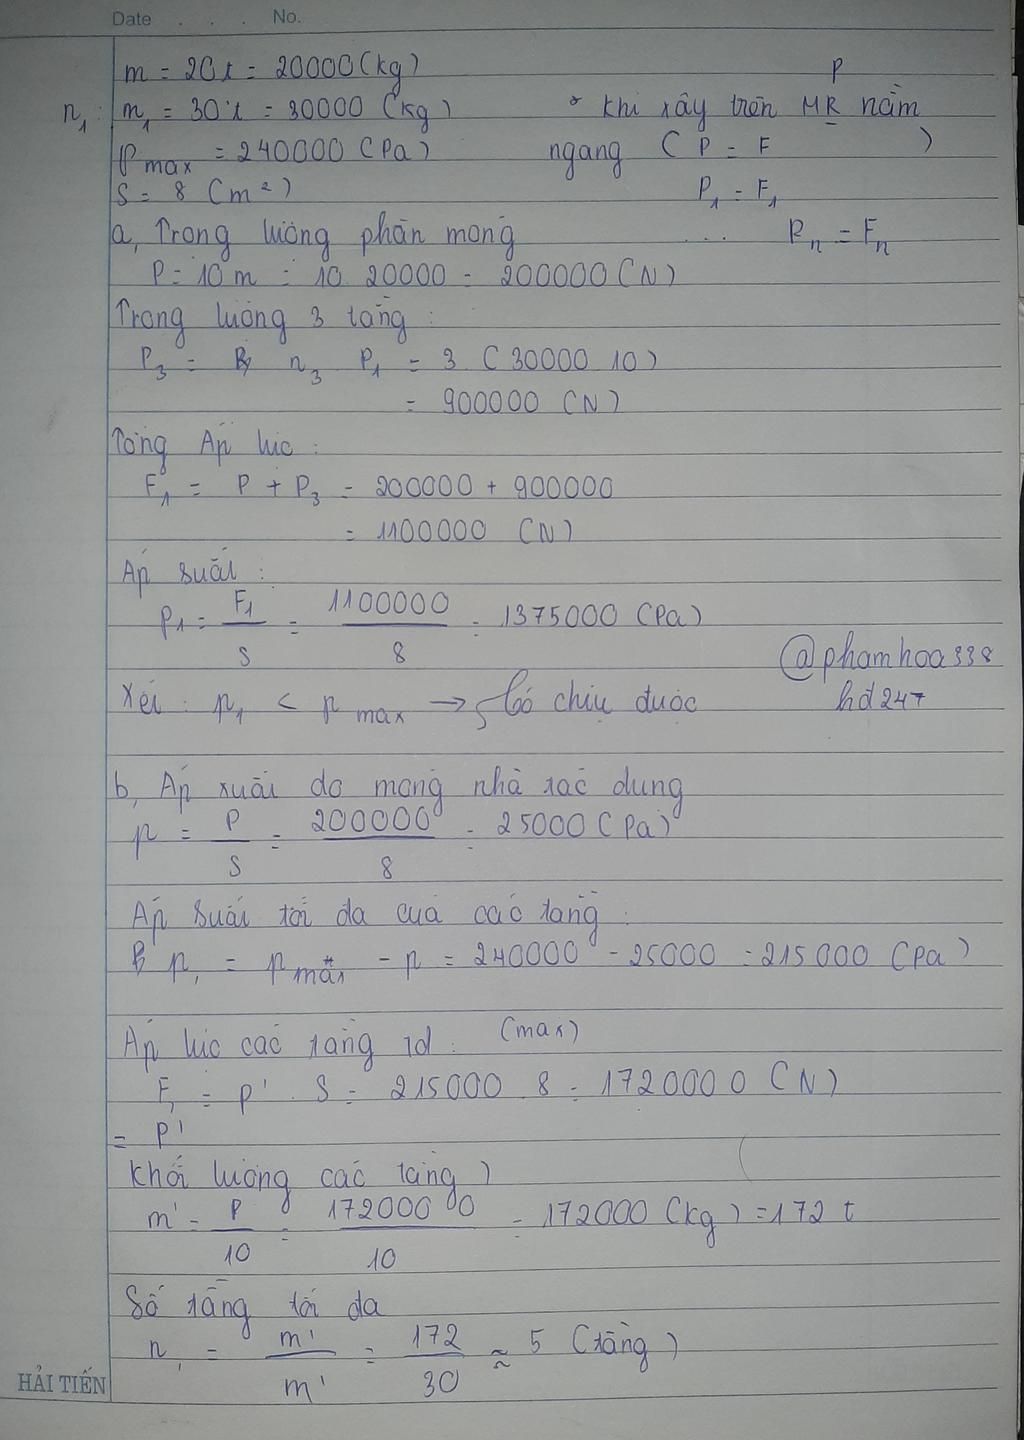 Date . . . No.
m = 20t = 20000 (kg)
n₁: m₁ = 30t = 30000 (kg)
Pmax = 240000 (Pa)
S = 8 (m²)
P
* khi xây trên MR nằm
ngang ( P = F )
P₁ = F₁
... Pn = Fn
a, Trọng lượng phần móng
P = 10m = 10 . 20000 = 200000 (N)
Trọng lượng 3 tầng :
P₃ = n₃ P₁ = 3 (30000 . 10)
= 900000 (N)
Tổng Áp lực :
F₁ = P + P₃ = 200000 + 900000
= 1100000 (N)
Áp suất :
p₁ = F₁/S = 1100000/8 = 1375000 (Pa)
@phamhoa338
hđ247
Xét : p₁ < p max → Có chịu được
b, Áp xuất do móng nhà tác dụng
p = P/S = 200000/8 = 25000 (Pa)
Áp suất tối đa của các tầng :
p, = pmax - p = 240000 - 25000 = 215000 (Pa)
Áp lực các tầng td : (max)
F, = p' . S = 215000 . 8 = 1720000 (N)
= P'
Khối lượng các tầng )
m' = P/10 = 1720000/10 = 172000 (kg) = 172 t
Số tầng tối đa
n, = m'/m' = 172/30 ≈ 5 (tầng)
HẢI TIẾN